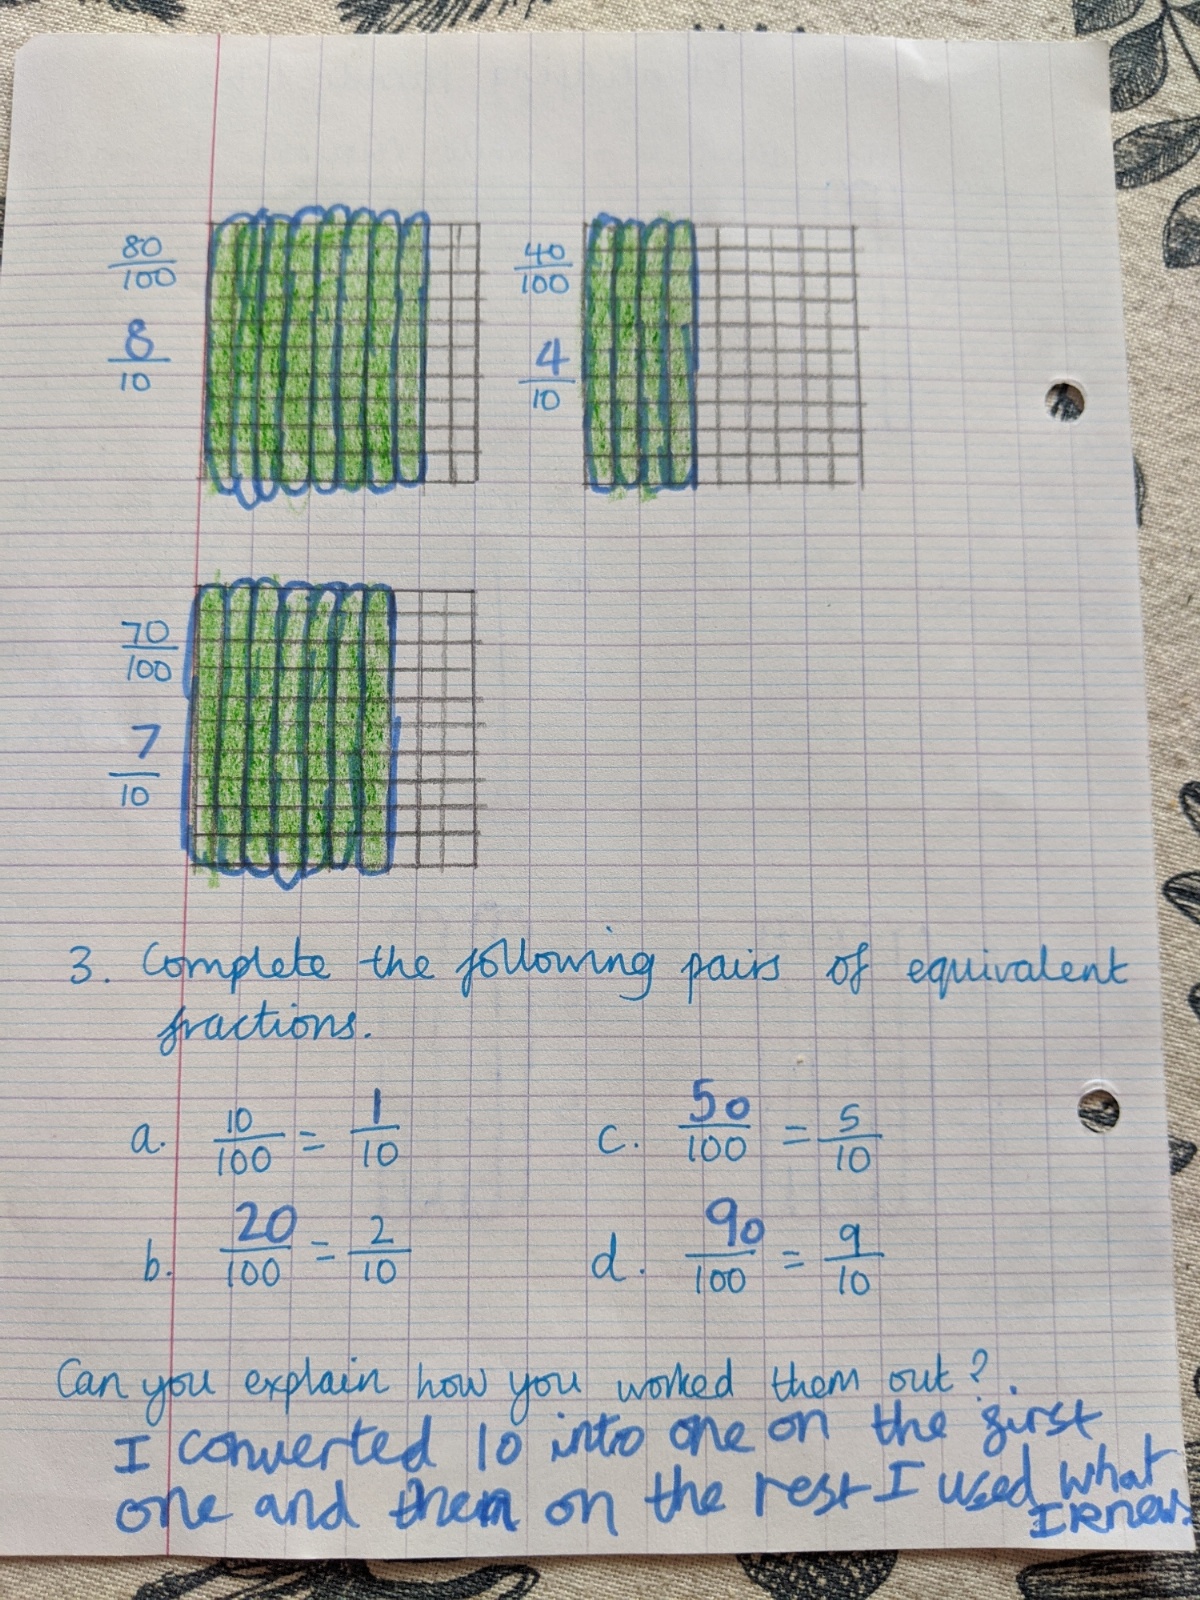 80/100
8/10
40/100
4/10
70/100
7/10
3. Complete the following pairs of equivalent
fractions.
a. 10/100 = 1/10
c. 50/100 = 5/10
b. 20/100 = 2/10
d. 90/100 = 9/10
Can you explain how you worked them out?.
I converted 10 into one on the first
one and then on the rest I used what
I knew.